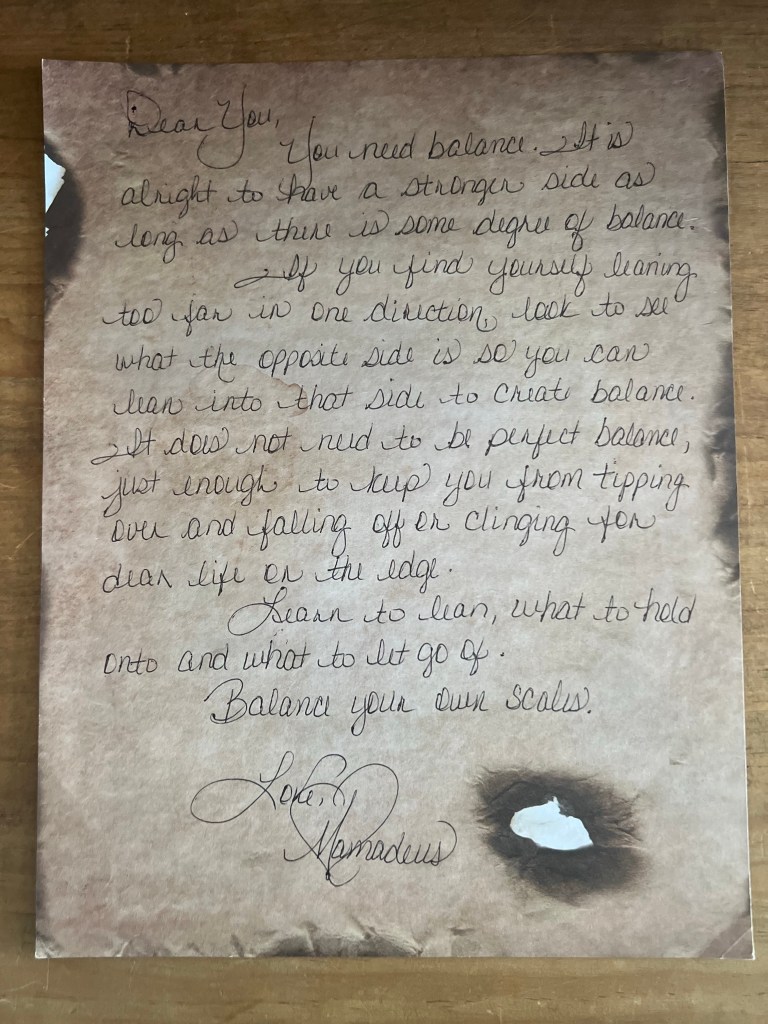 Dear You,
You need balance. It is
alright to have a stronger side as
long as there is some degree of balance.
If you find yourself leaning
too far in one direction, look to see
what the opposite side is so you can
lean into that side to create balance.
It does not need to be perfect balance,
just enough to keep you from tipping
over and falling off or clinging for
dear life on the edge.
Learn to lean, what to hold
onto and what to let go of.
Balance your own scales.
Love,
Mamadeus